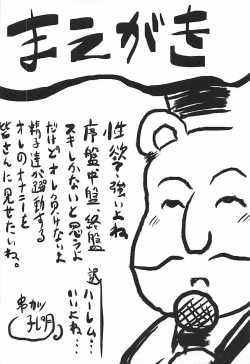 まえがき
性欲?強いよね
序盤中盤終盤
スキしかないと思うよ
だけどオレ負けないよ
精子達が躍動する
オレのオナニーを
皆さんに見せたいね。
ハーレム…
いいよね…